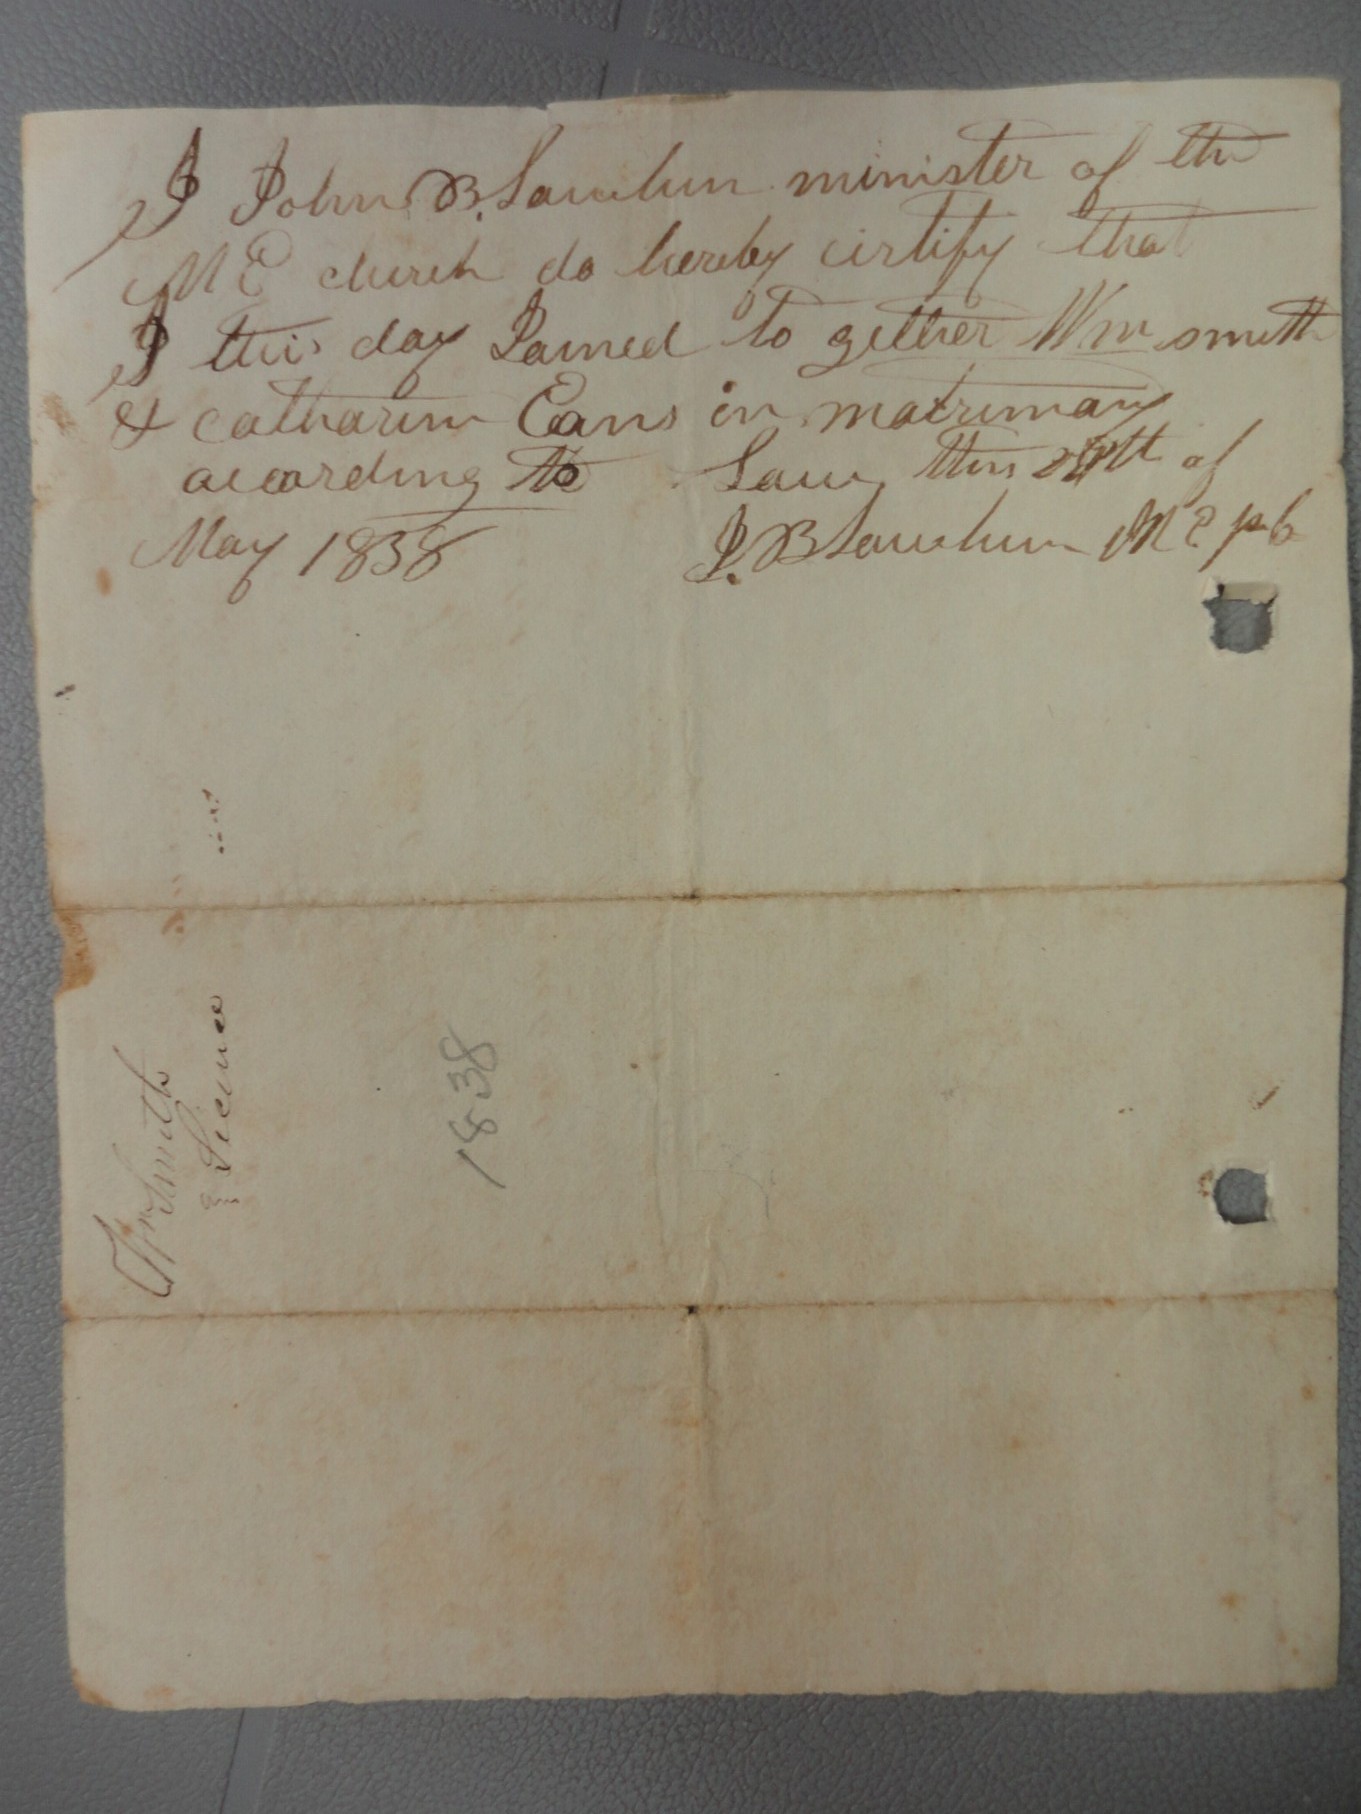 I John B. Lawhun minister of the
M E church do hereby certify that
I this day Joined to gether Wm smith
& catharin Eans in matrimony
according to Law this of
May 1838 J. B Lawhun M E
Wm Smith
Licence
1838